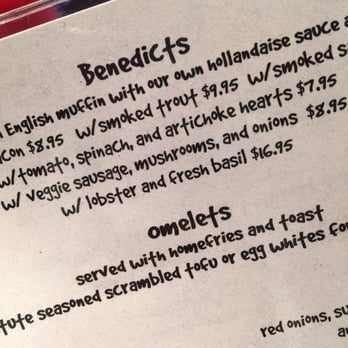 Benedicts
English muffin with our own hollandaise sauce
$8.95 w/smoked trout $9.95 w/smoked
w/tomato, spinach, and artichoke hearts $7.95
w/ veggie sausage, mushrooms, and onions $8.95
w/ lobster and fresh basil $16.95
omelets
served with homefries and toast
seasoned scrambled tofu or egg whites
red onions,